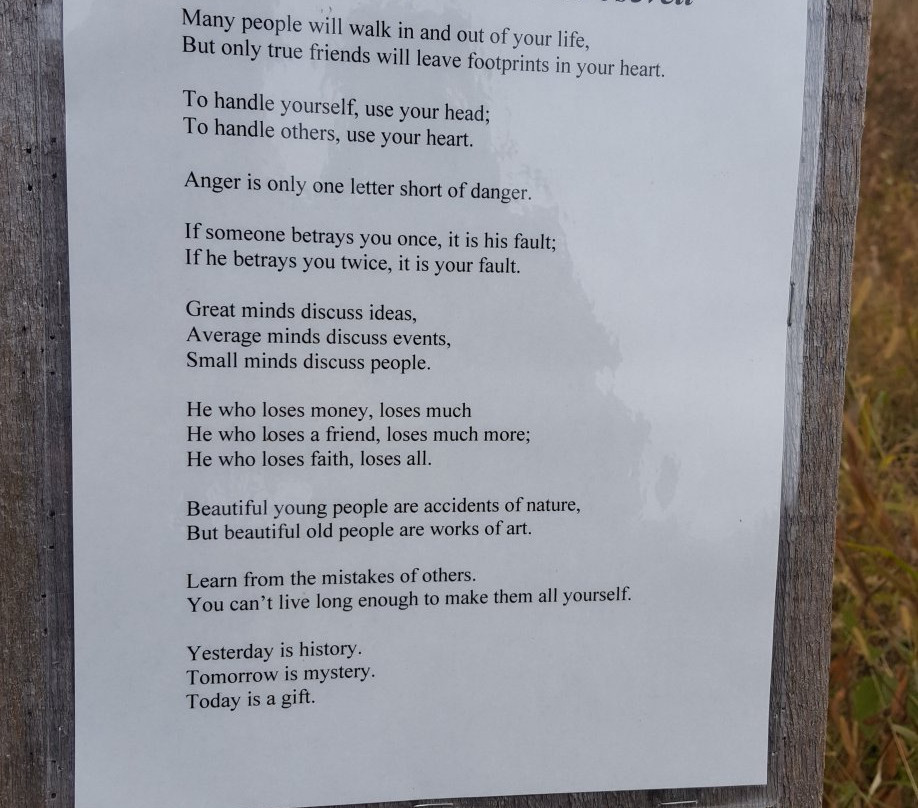 Many people will walk in and out of your life,
But only true friends will leave footprints in your heart.
To handle yourself, use your head;
To handle others, use your heart.
Anger is only one letter short of danger.
If someone betrays you once, it is his fault;
If he betrays you twice, it is your fault.
Great minds discuss ideas,
Average minds discuss events,
Small minds discuss people.
He who loses money, loses much
He who loses a friend, loses much more;
He who loses faith, loses all.
Beautiful young people are accidents of nature,
But beautiful old people are works of art.
Learn from the mistakes of others.
You can’t live long enough to make them all yourself.
Yesterday is history.
Tomorrow is mystery.
Today is a gift.